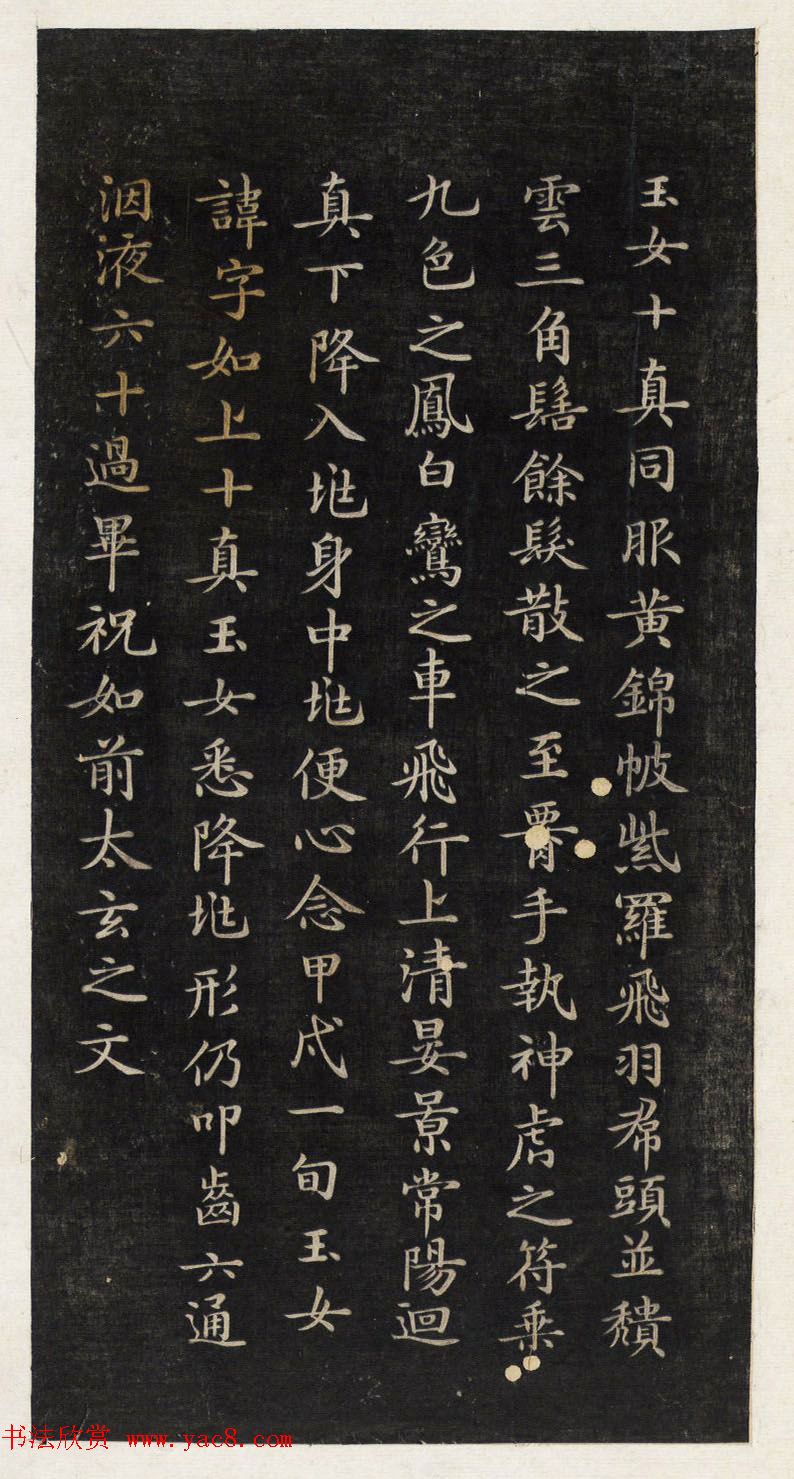 玉女十真同服黃錦帔紫羅飛羽帬頭並頹
雲三角髻餘髮散之至腰手執神虎之符乘
九色之鳳白鸞之車飛行上清晏景常陽迴
真下降入地身中地便心念甲戌一旬玉女
諱字如上十真玉女悉降地形仍叩齒六通
咽液六十過畢祝如前太玄之文
书法欣赏 www.yac8.com